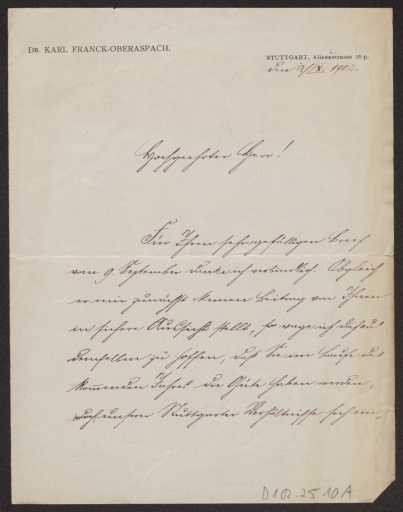 Dr. KARL FRANCK-OBERASPACH.
STUTTGART,
den 9/IX. 1902.
Hochgeehrter Herr!
Für Ihren sehr gefälligen Brief
vom 9. September danke ich verbindlich. Obgleich
er mir zunächst keinen Beitrag von Ihnen
in sichere Aussicht stellt, so wage ich doch auf
denselben zu hoffen, daß Sie im Laufe des
kommenden Jahres die Güte haben werden,
unseren Stuttgarter Verhältnisse sich
D102-25 10A